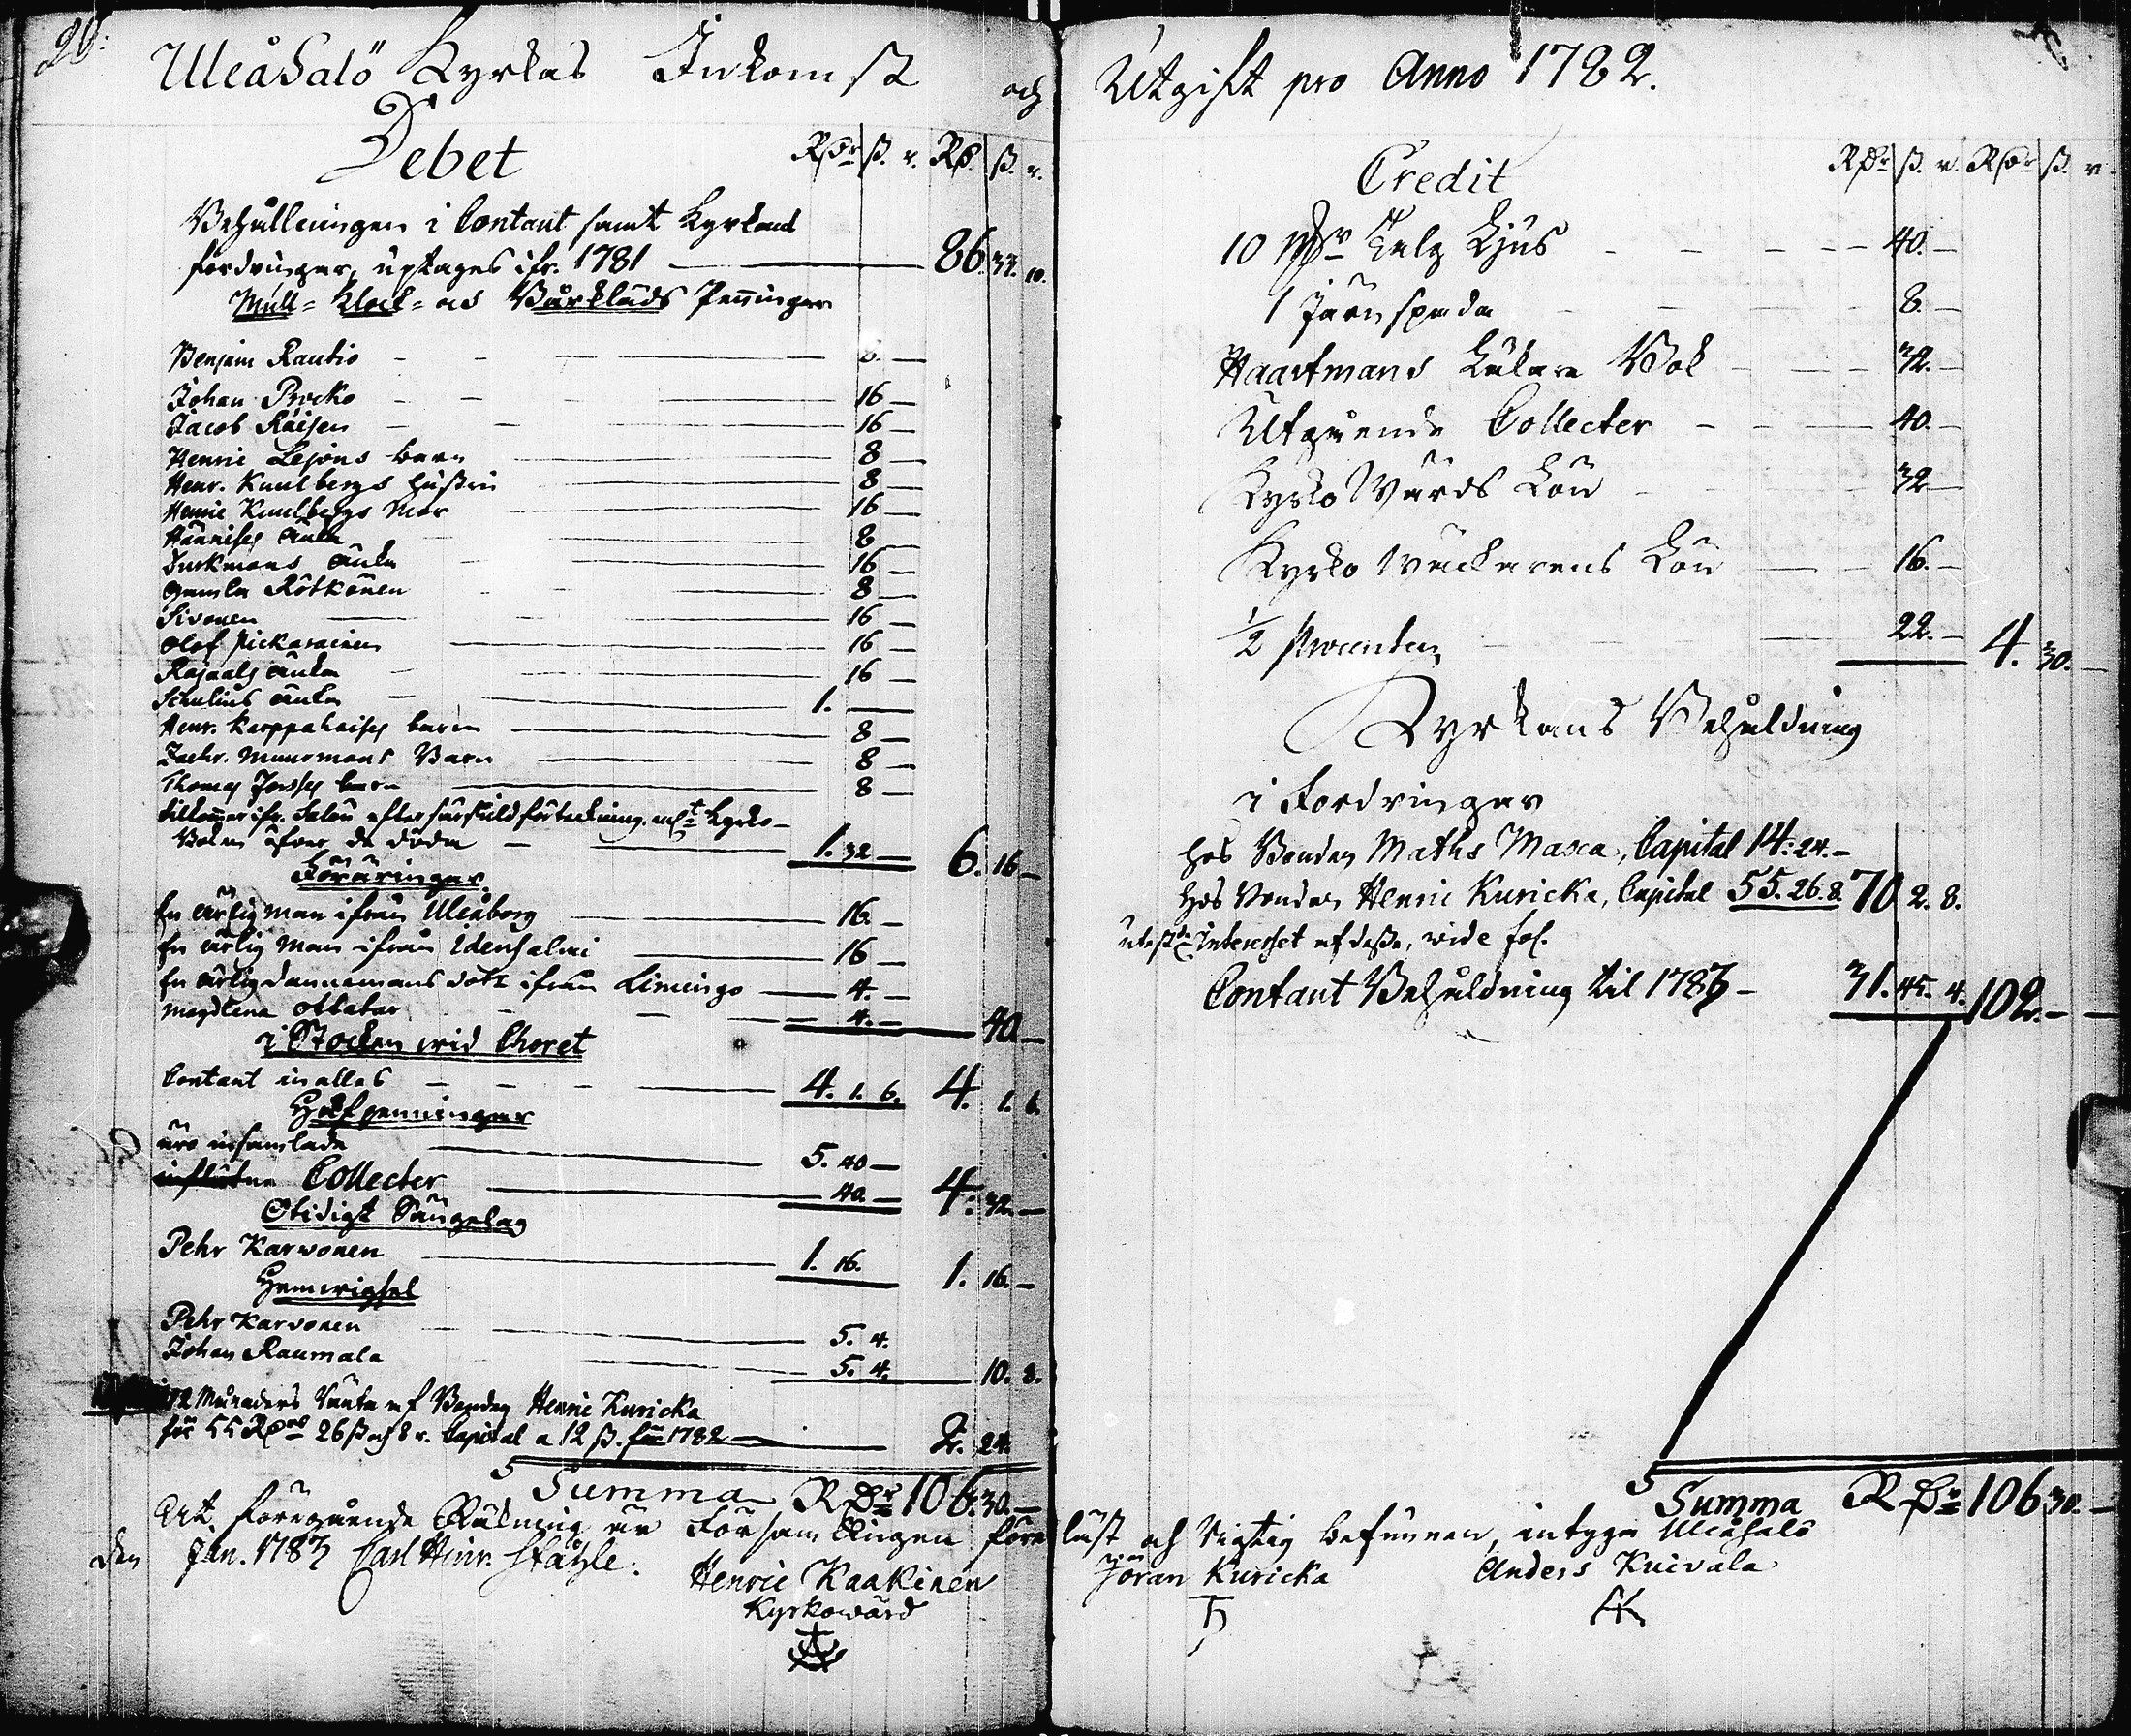 Uleåsalo Kyrkas Inkomst och
Debet
Rdr ß. r. Rd. ß. r.
Behållningen i Contant samt Kyrkans
fordringar, uptages ifr. 1781 — 86. 33. 10.
Mull- Klock- och Bårkläds Penningar
Benjam Rautio — 8. —
Johan — 16 —
Jacob Räisen — 16 —
Henric Lejons barn — 8 —
Henr. Kuulbergs hustru — 8 —
Henric Kuulbergs Mor — 16 —
änka — 8 —
Turkmans änka — 16 —
gamla Rötkönen — 8 —
Sivonen — 16 —
Olof Pickarainen — 16 —
Rajaals änka — 16 —
änka — 1. —
Henr. Karppahaises barn — 8 —
Zachr. Muurmans Barn — 8 —
Thomas barn — 8 —
tilkommer ifr. Salön efter särskild förteckning, Kyrko-
Boken öfver de döda — 1. 32 — 6. 16 —
Föräringar
En ärlig man ifrån Uleåborg — 16. —
En ärlig Man ifrån Idensalmi — 16 —
En ärlig dannemans dotr ifrån Limingo — 4. —
Magdlena — 4. — 40 —
i Stocken wid Choret
Contant in alles — 4. 1. 6. 4. 1. 6.
Håfpenningar
äro insamlade — 5. 40 —
influtne Collecter — 40. — 4: 32. —
Otidigt Sängelag
Pehr Karwonen — 1. 16. 1. 16. —
Hemvigsel
Pehr Karvonen — 5. 4.
Johan Raumala — 5. 4. 10. 8.
12 Månaders Ränta af Bonden Henric Kuricka
för 55 Rd 26 ß och 8 r. Capital a 12 ß. för 1782 — 2. 24.
Summa Rdr 106. 30. —
Utgift pro Anno 1782.
Credit
Rdr ß. r. Rdr ß. r.
10 Talg Ljus — 40. —
1 Järn spada — 8. —
Haartmans Läkare Bok — 32. —
Utgående Collecter — 40. —
Kyrko Wärds Lön — 32 —
Kyrko Wäckarens Lön — 16. —
1/2 Procenten — 22. — 4. 30. —
Kyrkans Behåldning
i Fordringar
hos Bonden Maths Maxa, Capital 14: 24. —
hos Bonden Henric Kuricka, Capital 55. 26. 8 70 2. 8.
Interesset af desse, wide fol.
Contant Behåldning til 1783 — 31. 45. 4. 102. — —
Summa Rdr 106 30. —
At föregående Räkning är Församlingen föreläst och Riktig befunnen, intyga Uleåsalo
den Jan. 1783 Carl Hinr. Ståhle. Henric Kaakinen Jöran Kuricka Anders Kuivala
Kyrkowärd